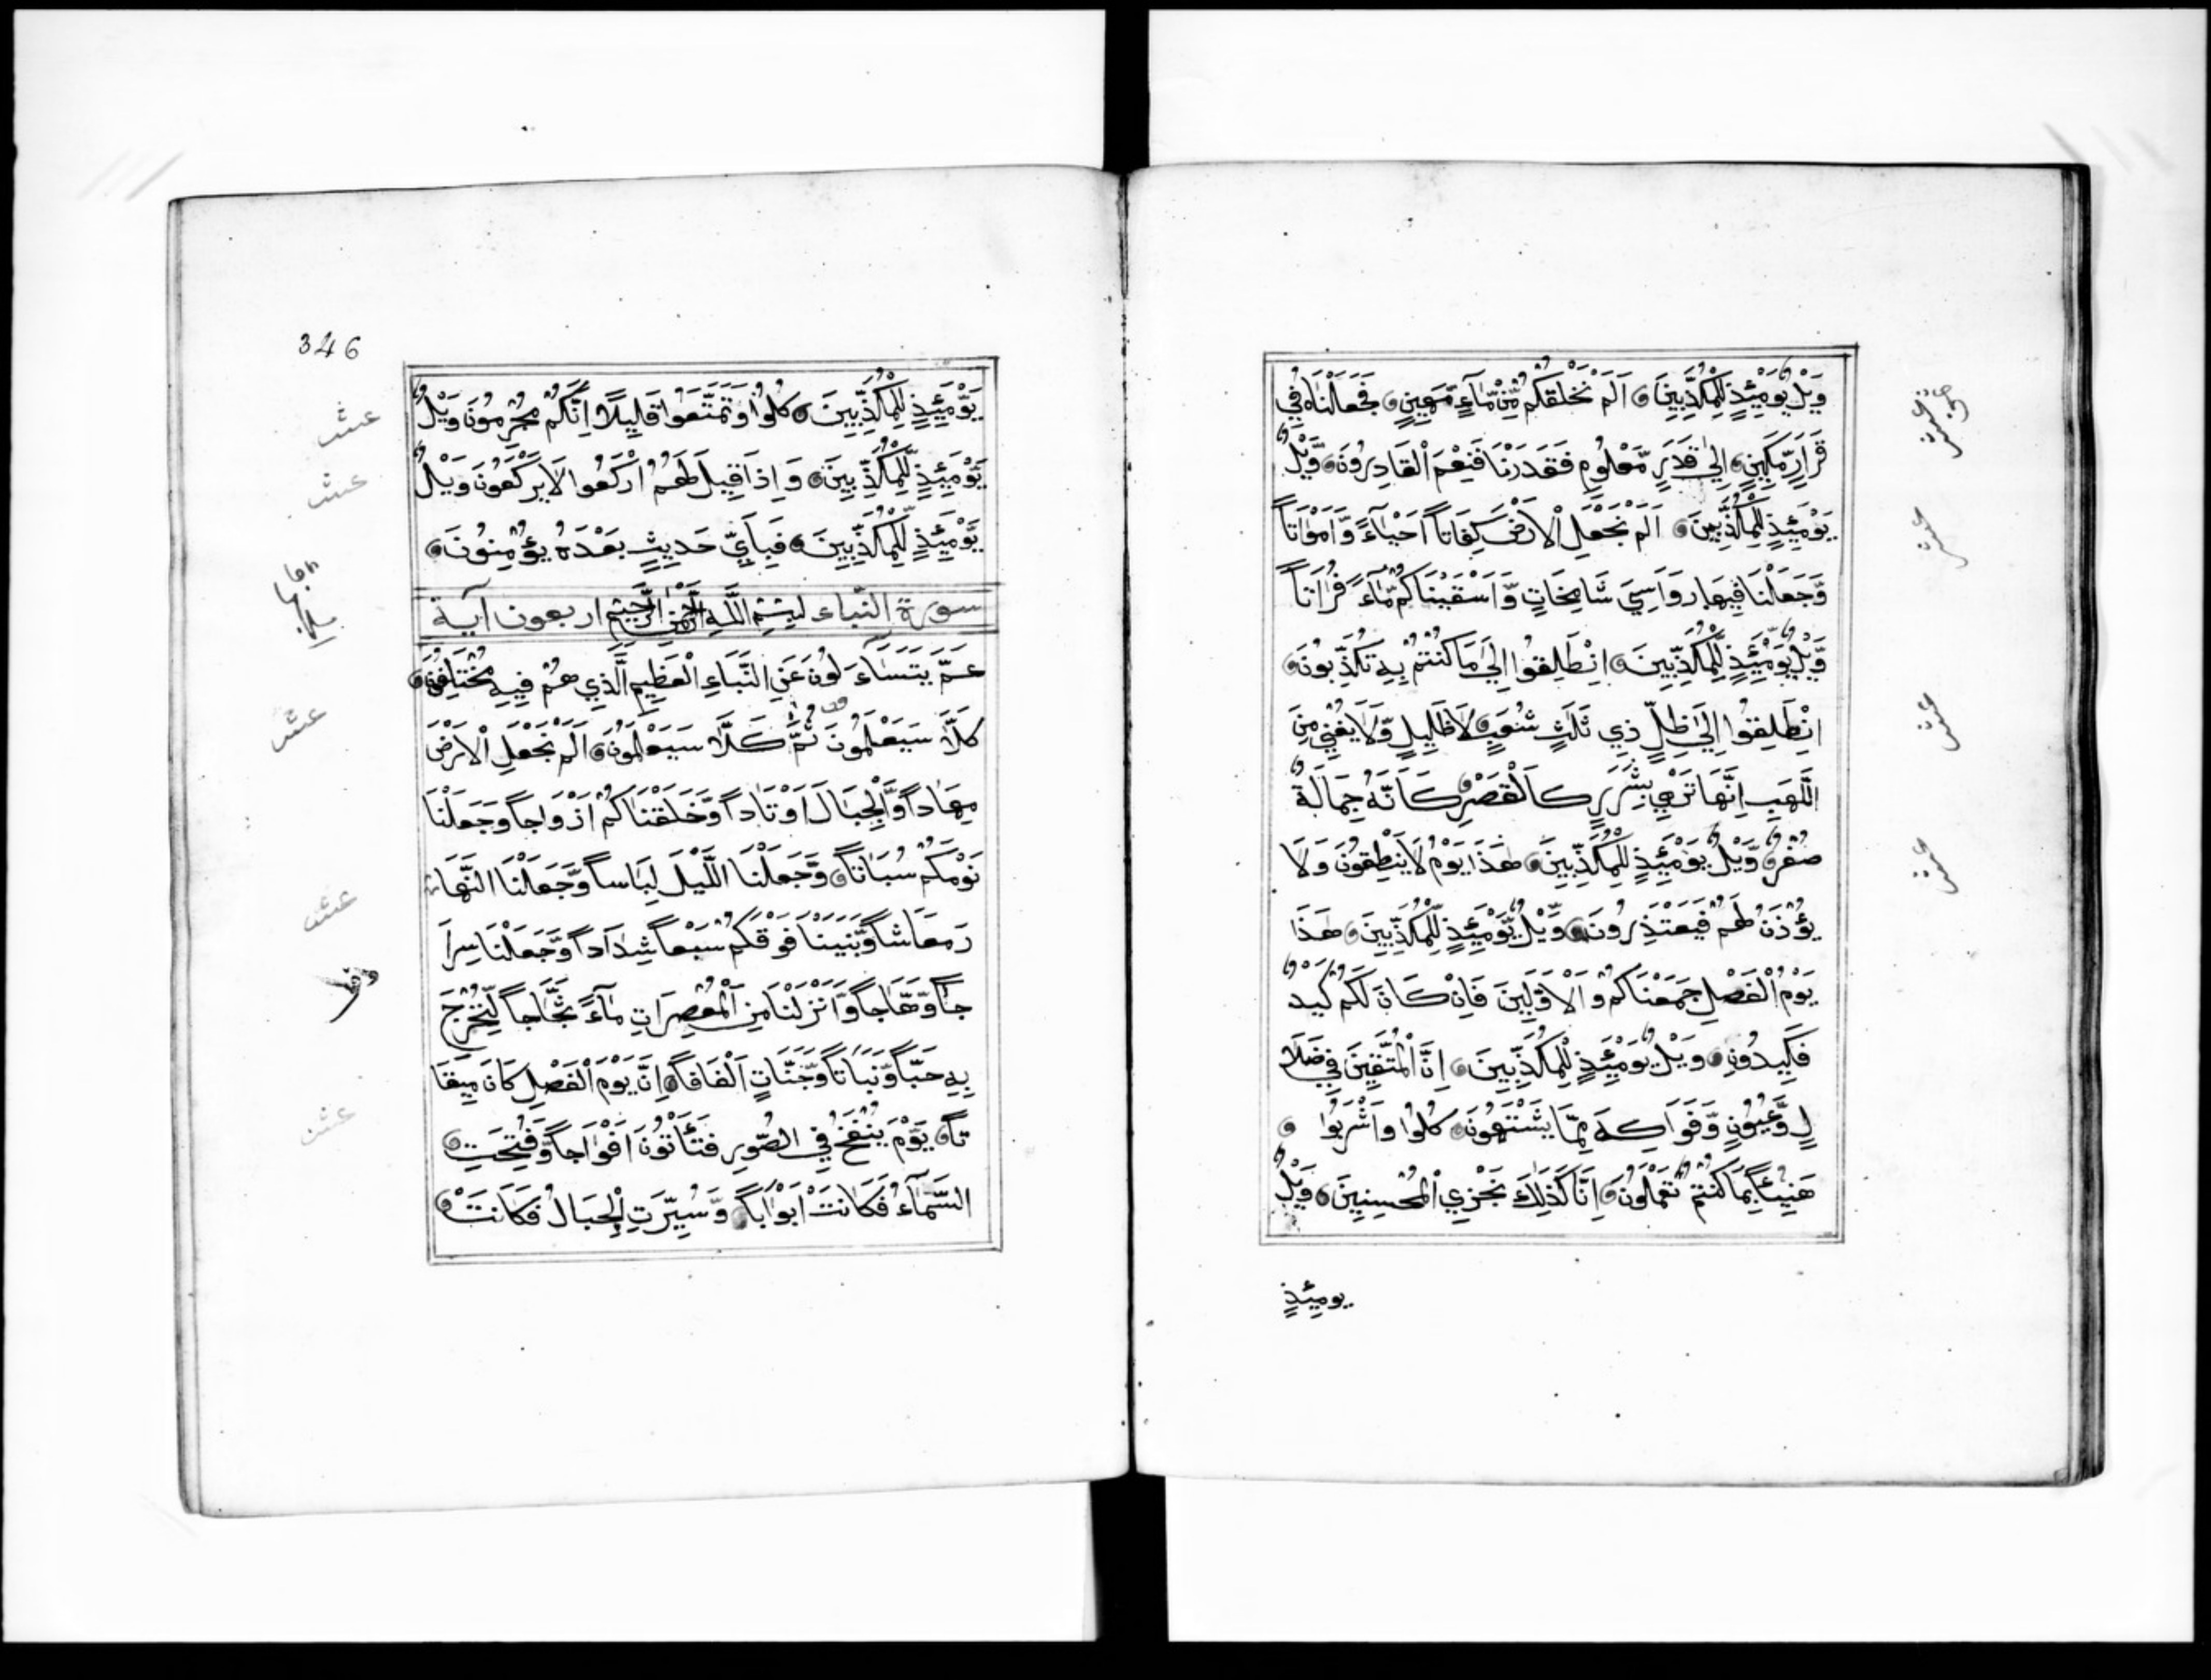 وَيْلٌ يَوْمَئِذٍ لِلْمُكَذِّبِينَ اَلَمْ نَخْلُقْكُمْ مِّنْ مَّآءٍ مَّهِينٍ فَجَعَلْنَاهُ فِي
قَرَارٍ مَّكِينٍ اِلَىٰ قَدَرٍ مَّعْلُومٍ فَقَدَرْنَا فَنِعْمَ الْقَادِرُونَ وَيْلٌ
يَوْمَئِذٍ لِلْمُكَذِّبِينَ اَلَمْ نَجْعَلِ الْاَرْضَ كِفَاتاً اَحْيَآءً وَّاَمْوَاتاً
وَّجَعَلْنَا فِيهَا رَوَاسِيَ شَامِخَاتٍ وَّاَسْقَيْنَاكُمْ مَّآءً فُرَاتاً
وَّيْلٌ يَوْمَئِذٍ لِّلْمُكَذِّبِينَ اِنْطَلِقُوا اِلَىٰ مَا كُنْتُمْ بِهِ تُكَذِّبُونَ
اِنْطَلِقُوا اِلَىٰ ظِلٍّ ذِي ثَلٰثِ شُعَبٍ لَا ظَلِيلٍ وَّلَا يُغْنِي مِنَ
اللَّهَبِ اِنَّهَا تَرْمِي بِشَرَرٍ كَالْقَصْرِ كَاَنَّهُ جِمَالَةٌ
صُفْرٌ وَّيْلٌ يَوْمَئِذٍ لِلْمُكَذِّبِينَ هٰذَا يَوْمُ لَا يَنْطِقُونَ وَلَا
يُؤْذَنُ لَهُمْ فَيَعْتَذِرُونَ وَيْلٌ يَّوْمَئِذٍ لِّلْمُكَذِّبِينَ هٰذَا
يَوْمُ الْفَصْلِ جَمَعْنَاكُمْ وَالْاَوَّلِينَ فَاِنْ كَانَ لَكُمْ كَيْدٌ
فَكِيدُونِ وَيْلٌ يَوْمَئِذٍ لِلْمُكَذِّبِينَ اِنَّ الْمُتَّقِينَ فِي ضَلَا
لٍ وَّعُيُونٍ وَّفَوَاكِهَ مِمَّا يَشْتَهُونَ كُلُوا وَاشْرَبُوا
هَنِيْئًا بِمَا كُنْتُمْ تَعْمَلُونَ اِنَّا كَذٰلِكَ نَجْزِي الْمُحْسِنِينَ وَيْلٌ
يومئِذٍ
عشر
عشر
عشر
عشر
346
يَوْمَئِذٍ لِلْمُكَذِّبِينَ كُلُوا وَتَمَتَّعُوا قَلِيلًا اِنَّكُمْ مُجْرِمُونَ وَيْلٌ
يَوْمَئِذٍ لِّلْمُكَذِّبِينَ وَاِذَا قِيلَ لَهُمُ ارْكَعُوا لَا يَرْكَعُونَ وَيْلٌ
يَوْمَئِذٍ لِّلْمُكَذِّبِينَ فَبِاَيِّ حَدِيثٍ بَعْدَهُ يُؤْمِنُونَ
سورة النباء بِسْمِ اللّٰهِ الرَّحْمٰنِ الرَّحِيمِ اربعون آية
عَمَّ يَتَسَآءَلُونَ عَنِ النَّبَاءِ الْعَظِيمِ الَّذِي هُمْ فِيهِ مُخْتَلِفُونَ
كَلَّا سَيَعْلَمُونَ ثُمَّ كَلَّا سَيَعْلَمُونَ اَلَمْ نَجْعَلِ الْاَرْضَ
مِهَاداً وَّالْجِبَالَ اَوْتَاداً وَّخَلَقْنَاكُمْ اَزْوَاجاً وَجَعَلْنَا
نَوْمَكُمْ سُبَاتاً وَّجَعَلْنَا اللَّيْلَ لِبَاساً وَّجَعَلْنَا النَّهَا
رَ مَعَاشاً وَّبَنَيْنَا فَوْقَكُمْ سَبْعاً شِدَاداً وَّجَعَلْنَا سِرَا
جاً وَّهَّاجاً وَّاَنْزَلْنَا مِنَ الْمُعْصِرَاتِ مَآءً ثَجَّاجاً لِّنُخْرِجَ
بِهِ حَبّاً وَّنَبَاتاً وَّجَنَّاتٍ اَلْفَافاً اِنَّ يَوْمَ الْفَصْلِ كَانَ مِيقَا
تاً يَوْمَ يُنْفَخُ فِي الصُّورِ فَتَأْتُونَ اَفْوَاجاً وَّفُتِحَتِ
السَّمَآءُ فَكَانَتْ اَبْوَاباً وَّسُيِّرَتِ الْجِبَالُ فَكَانَتْ
عشر
عشر
عشر
عشر
عشر